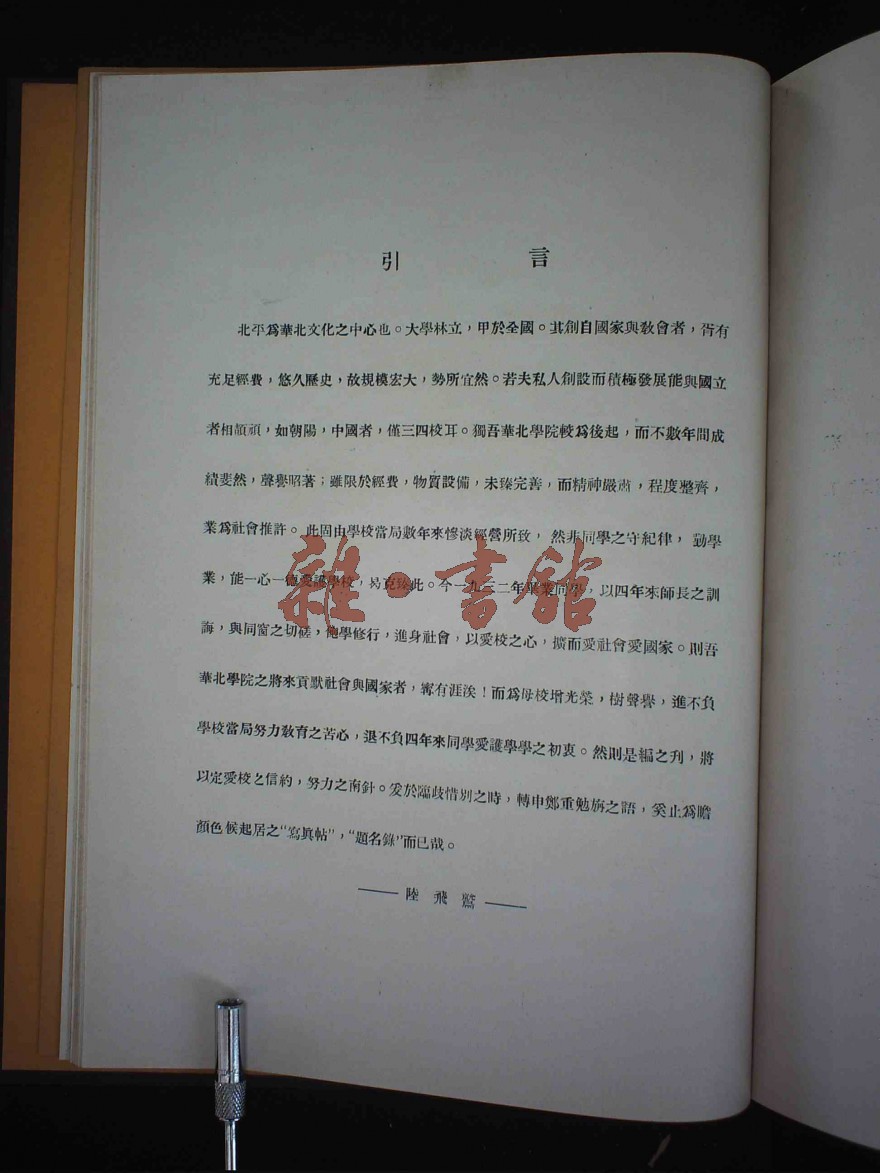 引言
北平爲華北文化之中心也。大學林立，甲於全國。其創自國家與敎會者，胥有
充足經費，悠久歷史，故規模宏大，勢所宜然。若夫私人創設而積極發展能與國立
者相頡頏，如朝陽，中國者，僅三四校耳。獨吾華北學院較爲後起，而不數年間成
績斐然，聲譽昭著；雖限於經費，物質設備，未臻完善，而精神嚴肅，程度整齊，
業爲社會推許。此固由學校當局數年來慘淡經營所致，然非同學之守紀律，勤學
業，能一心一德愛護學校，曷克臻此。今一九三二年畢業同學，以四年來師長之訓
誨，與同窗之切磋，飽學修行，進身社會，以愛校之心，擴而愛社會愛國家。則吾
華北學院之將來貢獻社會與國家者，寗有涯涘！而爲母校增光榮，樹聲譽，進不負
學校當局努力敎育之苦心，退不負四年來同學愛護學學之初衷。然則是編之刋，將
以定愛校之信約，努力之南針。爰於臨歧惜別之時，轉申鄭重勉旃之語，奚止爲瞻
顏色候起居之“寫眞帖”，“題名錄”而已哉。
——陸飛鵞——
雜·書館